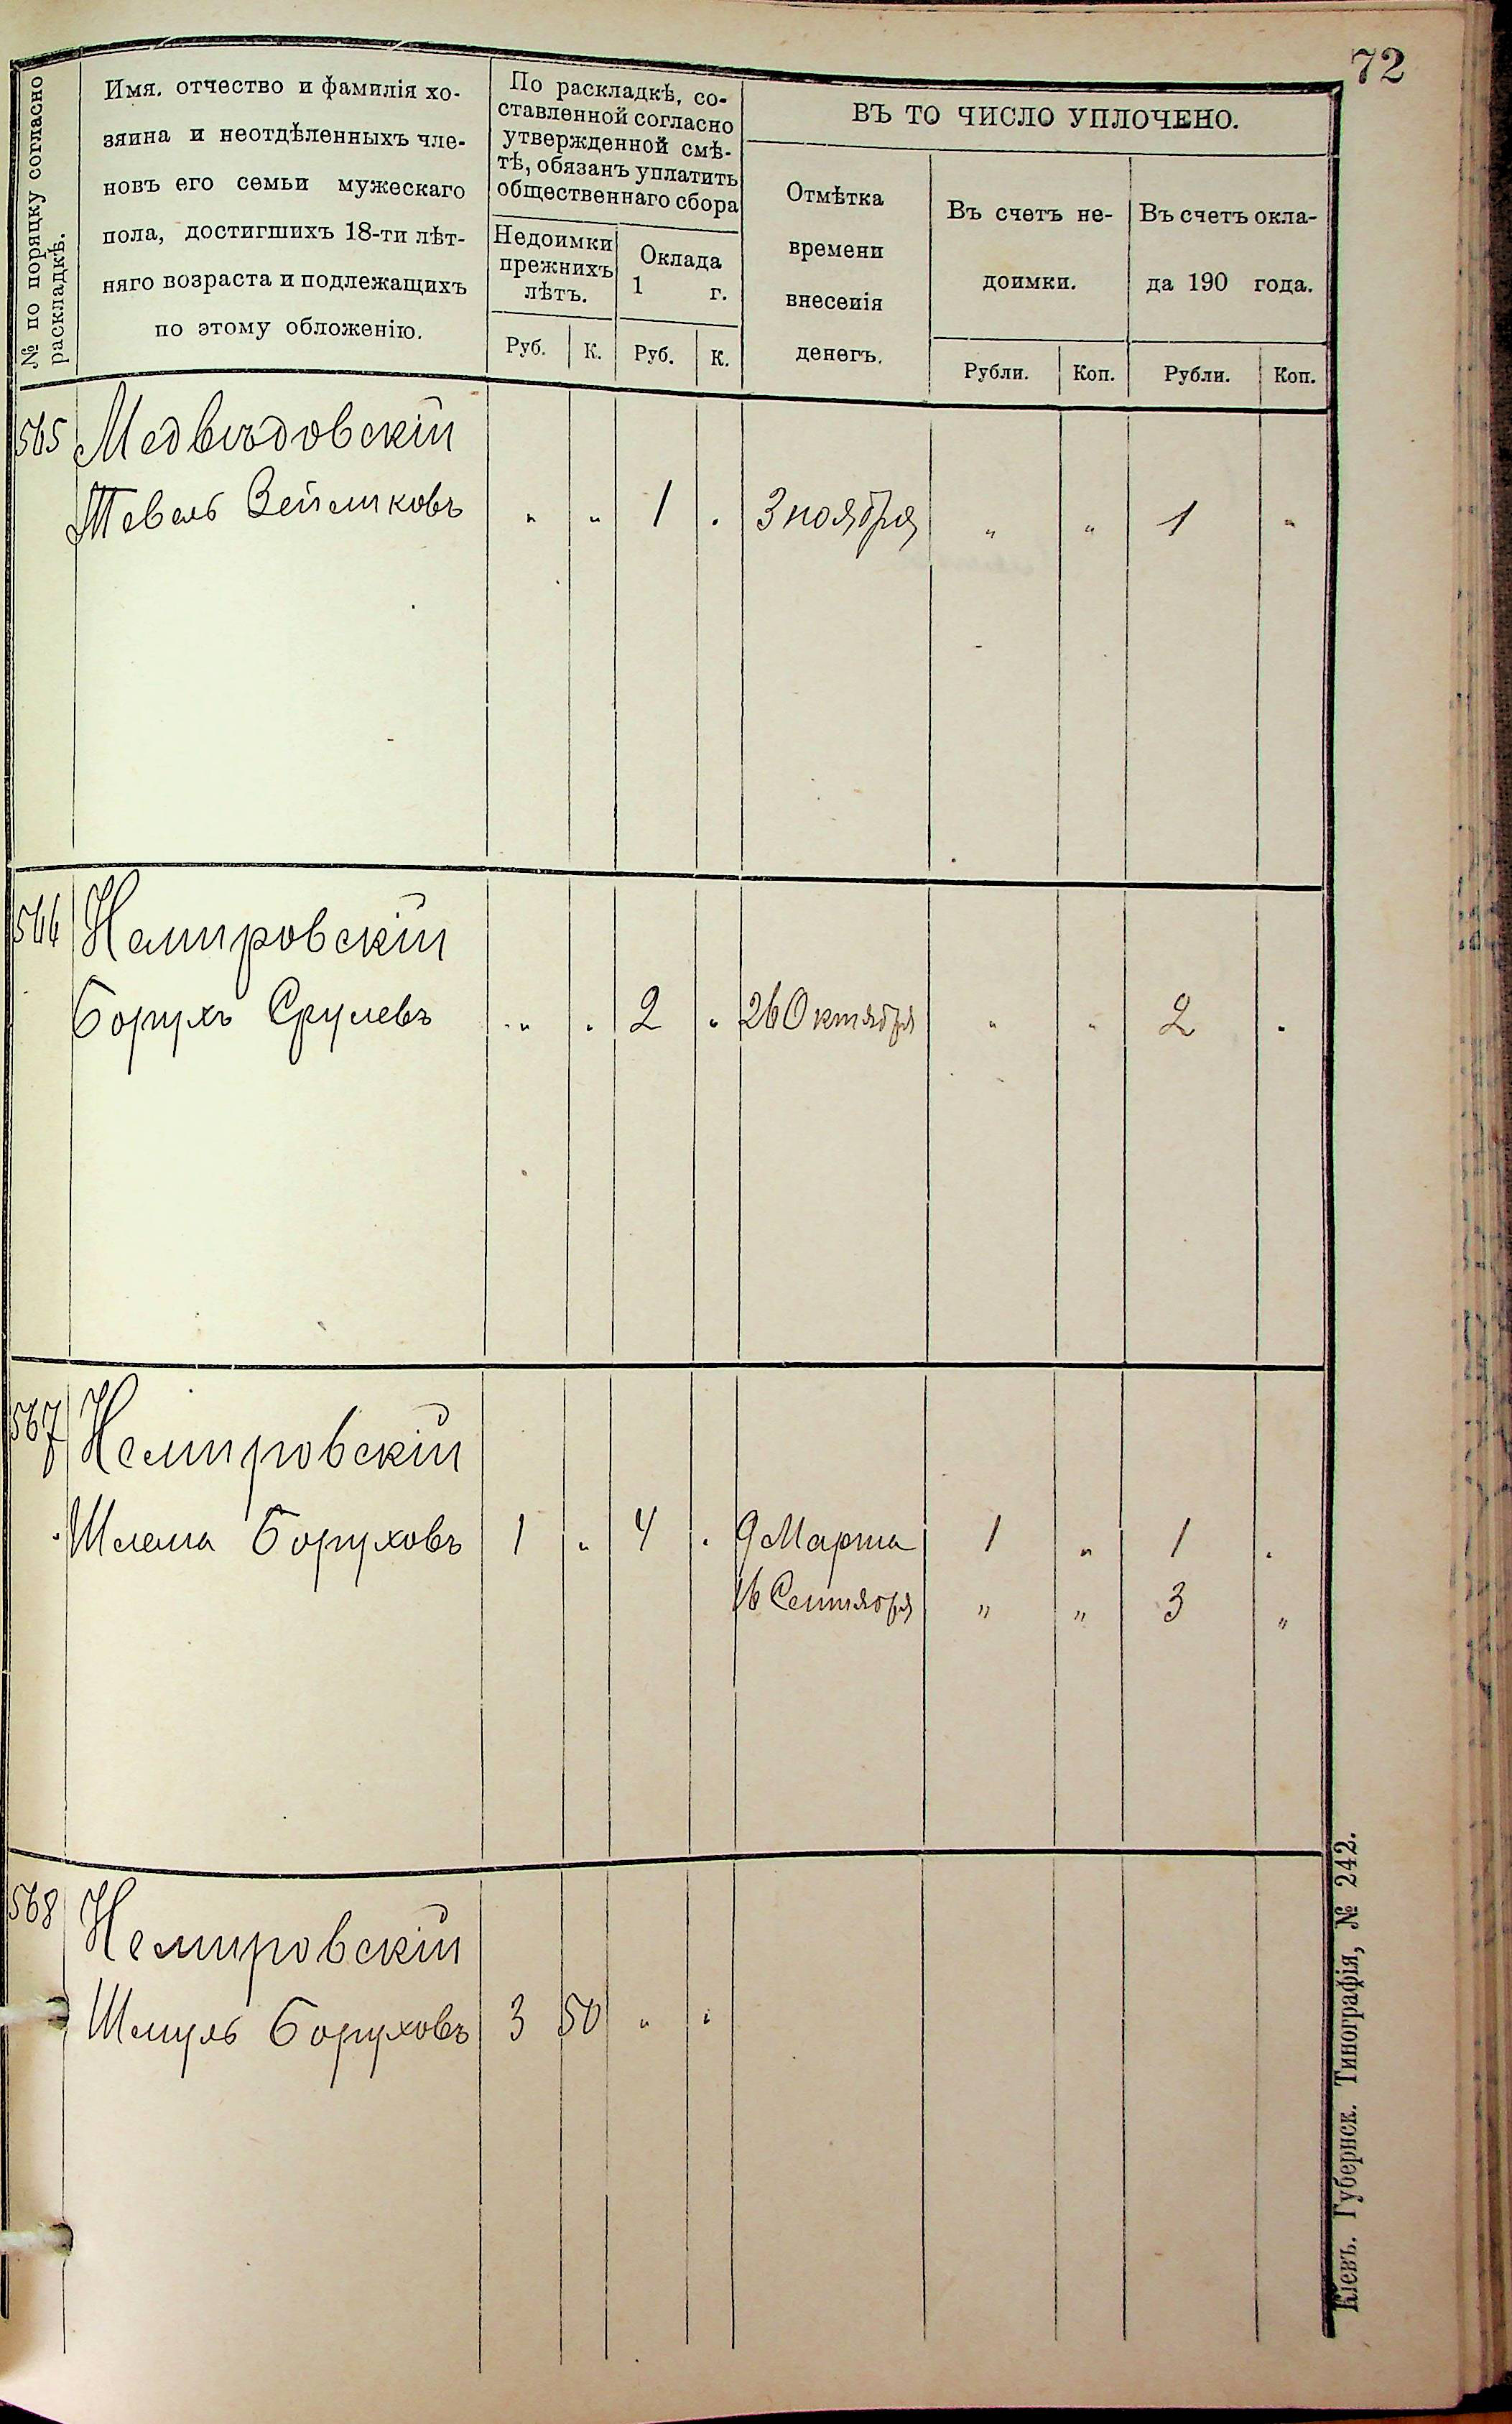 72
№ по поряцку согласно
раскладкѣ.
Имя, отчество и фамилія хо-
зяина и неотдѣленныхъ чле-
новъ его семьи мужескаго
пола, достигшихъ 18-ти лѣт-
няго возраста и подлежащихъ
по этому обложенію.
По раскладкѣ, со-
ставленной согласно
утвержденной смѣ-
тѣ, обязанъ уплатить
общественнаго сбора
Недоимки
прежнихъ
лѣтъ.
Оклада
1 г.
Руб. К. Руб. К.
ВЪ ТО ЧИСЛО УПЛОЧЕНО.
Отмѣтка
времени
внесенія
денегъ.
Въ счетъ не-
доимки.
Въ счетъ окла-
да 190 года.
Рубли. Коп. Рубли. Коп.
565 Медвѣдовскій
Тевель Зейликовъ " " 1 " 3 ноября " " 1 "
566 Немировскій
Борухъ Срулевъ " " 2 " 26 Октября " " 2 "
567 Немировскій
Шлема Боруховъ 1 " 4 " 9 Марта 1 " 1 "
16 Сентября " " 3 "
568 Немировскій
Шмуль Боруховъ 3 50 " "
Кіевъ. Губернск. Типографія, № 242.